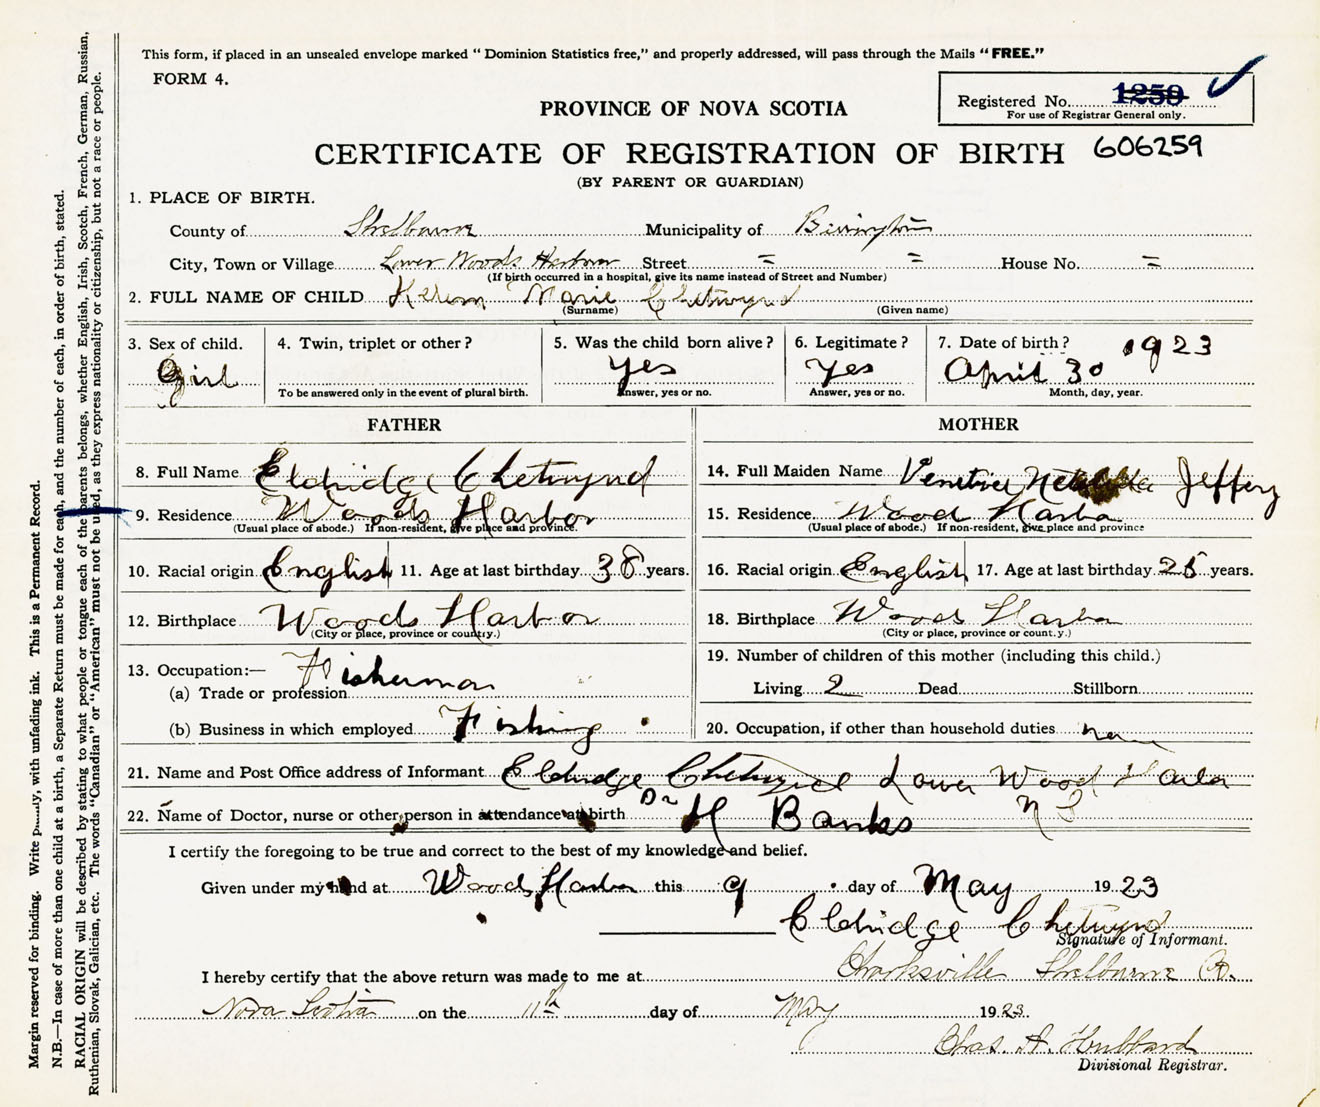 This form, if placed in an unsealed envelope marked “ Dominion Statistics free,” and properly addressed, will pass through the Mails “ FREE.”
FORM 4.
Registered No. 1259
For use of Registrar General only.
PROVINCE OF NOVA SCOTIA
CERTIFICATE OF REGISTRATION OF BIRTH 606259
(BY PARENT OR GUARDIAN)
1. PLACE OF BIRTH.
County of Shelburne Municipality of Barrington
City, Town or Village Lower Woods Harbour Street = = House No. =
(If birth occurred in a hospital, give its name instead of Street and Number)
2. FULL NAME OF CHILD Marie Chetwynd
(Surname) (Given name)
3. Sex of child. Girl
4. Twin, triplet or other?
To be answered only in the event of plural birth.
5. Was the child born alive? Yes
Answer, yes or no.
6. Legitimate? Yes
Answer, yes or no.
7. Date of birth? April 30 1923
Month, day, year.
FATHER
8. Full Name Eldridge Chetwynd
9. Residence Woods Harbor
(Usual place of abode.) If non-resident, give place and province.
10. Racial origin English 11. Age at last birthday 38 years.
12. Birthplace Woods Harbor
(City or place, province or country.)
13. Occupation:— Fisherman
(a) Trade or profession
(b) Business in which employed Fishing
MOTHER
14. Full Maiden Name Jeffery
15. Residence Wood Harbor
(Usual place of abode.) If non-resident, give place and province
16. Racial origin English 17. Age at last birthday years.
18. Birthplace Woods Harbor
(City or place, province or count.y.)
19. Number of children of this mother (including this child.)
Living 2 Dead Stillborn
20. Occupation, if other than household duties
21. Name and Post Office address of Informant Eldridge Chetwynd Lower Wood Harbor
22. Name of Doctor, nurse or other person in attendance at birth Dr H Banks N S
I certify the foregoing to be true and correct to the best of my knowledge and belief.
Given under my hand at Woods Harbor this 9 day of May 1923
Eldridge Chetwynd
Signature of Informant.
I hereby certify that the above return was made to me at Clarksville Shelburne Co.
Nova Scotia on the 11th day of May 1923.
Chas. A. Hubbard
Divisional Registrar.
Margin reserved for binding. Write , with unfading ink. This is a Permanent Record.
N.B.—In case of more than one child at a birth, a Separate Return must be made for each, and the number of each, in order of birth, stated.
RACIAL ORIGIN will be described by stating to what people or tongue each of the parents belongs, whether English, Irish, Scotch, French, German, Russian,
Ruthenian, Slovak, Galician, etc. The words “Canadian” or “American” must not be used, as they express nationality or citizenship, but not a race or people.